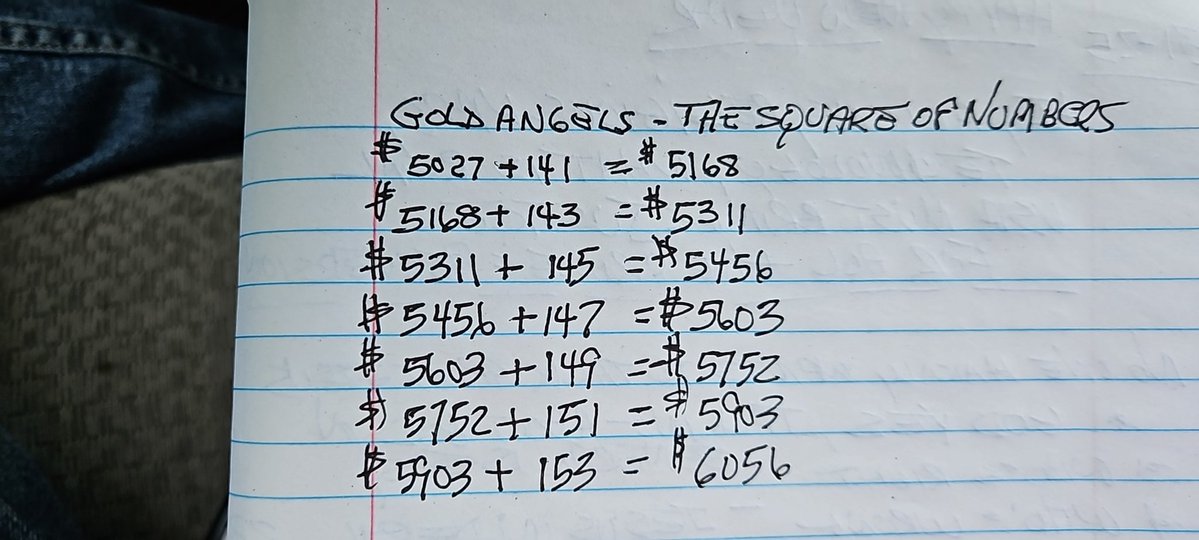 GOLD ANGELS - THE SQUARE OF NUMBERS
$5027 + 141 = $5168
$5168 + 143 = $5311
$5311 + 145 = $5456
$5456 + 147 = $5603
$5603 + 149 = $5752
$5752 + 151 = $5903
$5903 + 153 = $6056